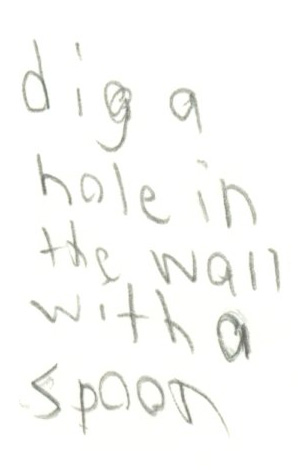 dig a
hole in
the wall
with a
spoon